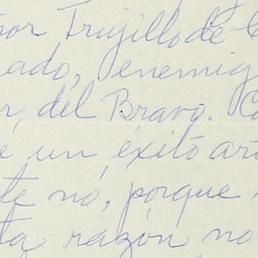 por Trujillo de
ado, enemig
r, del Bravo.
un éxito
te no, porque
ta razón no